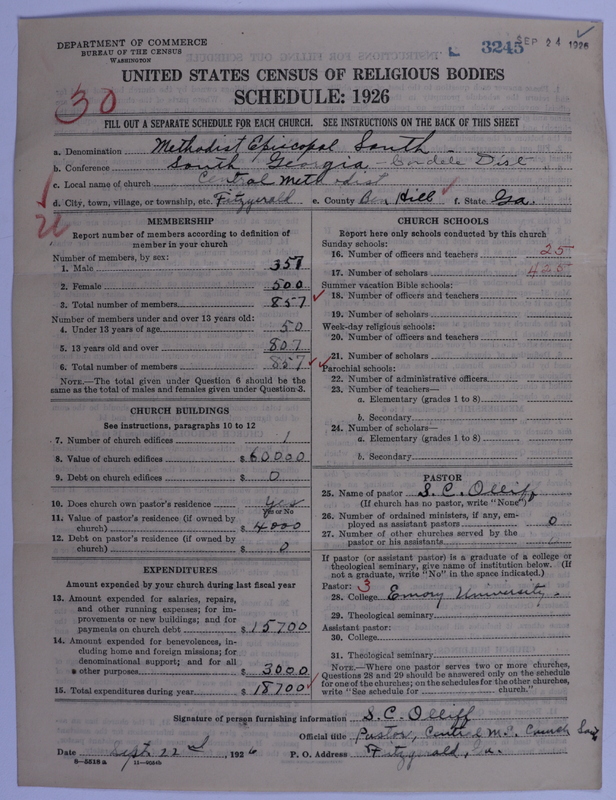 DEPARTMENT OF COMMERCE
BUREAU OF THE CENSUS
WASHINGTON
3245
SEP 24 1926
UNITED STATES CENSUS OF RELIGIOUS BODIES
SCHEDULE: 1926
30
FILL OUT A SEPARATE SCHEDULE FOR EACH CHURCH. SEE INSTRUCTIONS ON THE BACK OF THIS SHEET
a. Denomination Methodist Episcopal South
b. Conference South Georgia - Cordele Dist
c. Local name of church Central Methodist
d. City, town, village, or township, etc. Fitzgerald e. County Ben Hill f. State Ga.
MEMBERSHIP
Report number of members according to definition of
member in your church
Number of members, by sex:
1. Male 357
2. Female 500
3. Total number of members 857
Number of members under and over 13 years old:
4. Under 13 years of age 50
5. 13 years old and over 807
6. Total number of members 857
NOTE.—The total given under Question 6 should be
the same as the total of males and females given under Question 3.
CHURCH BUILDINGS
See instructions, paragraphs 10 to 12
7. Number of church edifices 1
8. Value of church edifices $60000
9. Debt on church edifices $0
10. Does church own pastor's residence Yes
Yes or No
11. Value of pastor's residence (if owned by
church) $4000
12. Debt on pastor's residence (if owned by
church) $0
EXPENDITURES
Amount expended by your church during last fiscal year
13. Amount expended for salaries, repairs,
and other running expenses; for im-
provements or new buildings; and for
payments on church debt $15700
14. Amount expended for benevolences, in-
cluding home and foreign missions; for
denominational support; and for all
other purposes $3000
15. Total expenditures during year $18700
CHURCH SCHOOLS
Report here only schools conducted by this church
Sunday schools:
16. Number of officers and teachers 25
17. Number of scholars 425
Summer vacation Bible schools:
18. Number of officers and teachers
19. Number of scholars
Week-day religious schools:
20. Number of officers and teachers
21. Number of scholars
Parochial schools:
22. Number of administrative officers
23. Number of teachers—
a. Elementary (grades 1 to 8)
b. Secondary
24. Number of scholars—
a. Elementary (grades 1 to 8)
b. Secondary
PASTOR
25. Name of pastor S. C. Olliff
(If church has no pastor, write "None")
26. Number of ordained ministers, if any, em-
ployed as assistant pastors 0
27. Number of other churches served by the
pastor or his assistants
If pastor (or assistant pastor) is a graduate of a college or
theological seminary, give name of institution below. (If
not a graduate, write "No" in the space indicated.)
Pastor: 3
28. College Emory University.
29. Theological seminary
Assistant pastor:
30. College
31. Theological seminary
NOTE.—Where one pastor serves two or more churches,
Questions 28 and 29 should be answered only on the schedule
for one of the churches; on the schedules for the other churches,
write "See schedule for church."
Signature of person furnishing information S. C. Olliff
Official title Pastor, Central M.E. Church South
Date Sept. 22d, 1926 P. O. Address Fitzgerald, Ga.
8—5518 a 11—9054b